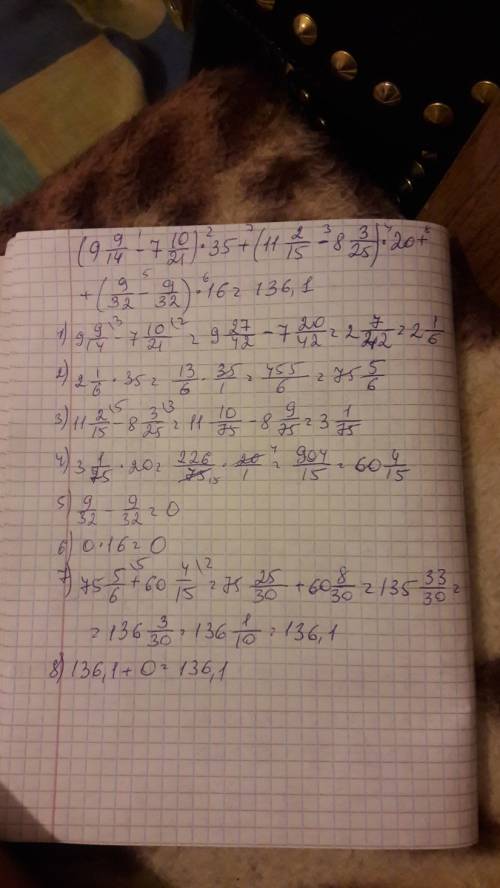 (9 9/14 - 7 10/21) · 35 + (11 2/15 - 8 3/25) · 20 +
+ (9/32 - 9/32) · 16 = 136,1
1) 9 9/14 \3 - 7 10/21 \2 = 9 27/42 - 7 20/42 = 2 7/42 = 2 1/6
2) 2 1/6 · 35 = 13/6 · 35/1 = 455/6 = 75 5/6
3) 11 2/15 \5 - 8 3/25 \3 = 11 10/75 - 8 9/75 = 3 1/75
4) 3 1/75 · 20 = 226/75 15 · 20/1 4 = 904/15 = 60 4/15
5) 9/32 - 9/32 = 0
6) 0 · 16 = 0
7) 75 5/6 \5 + 60 4/15 \2 = 75 25/30 + 60 8/30 = 135 33/30 =
= 136 3/30 = 136 1/10 = 136,1
8) 136,1 + 0 = 136,1